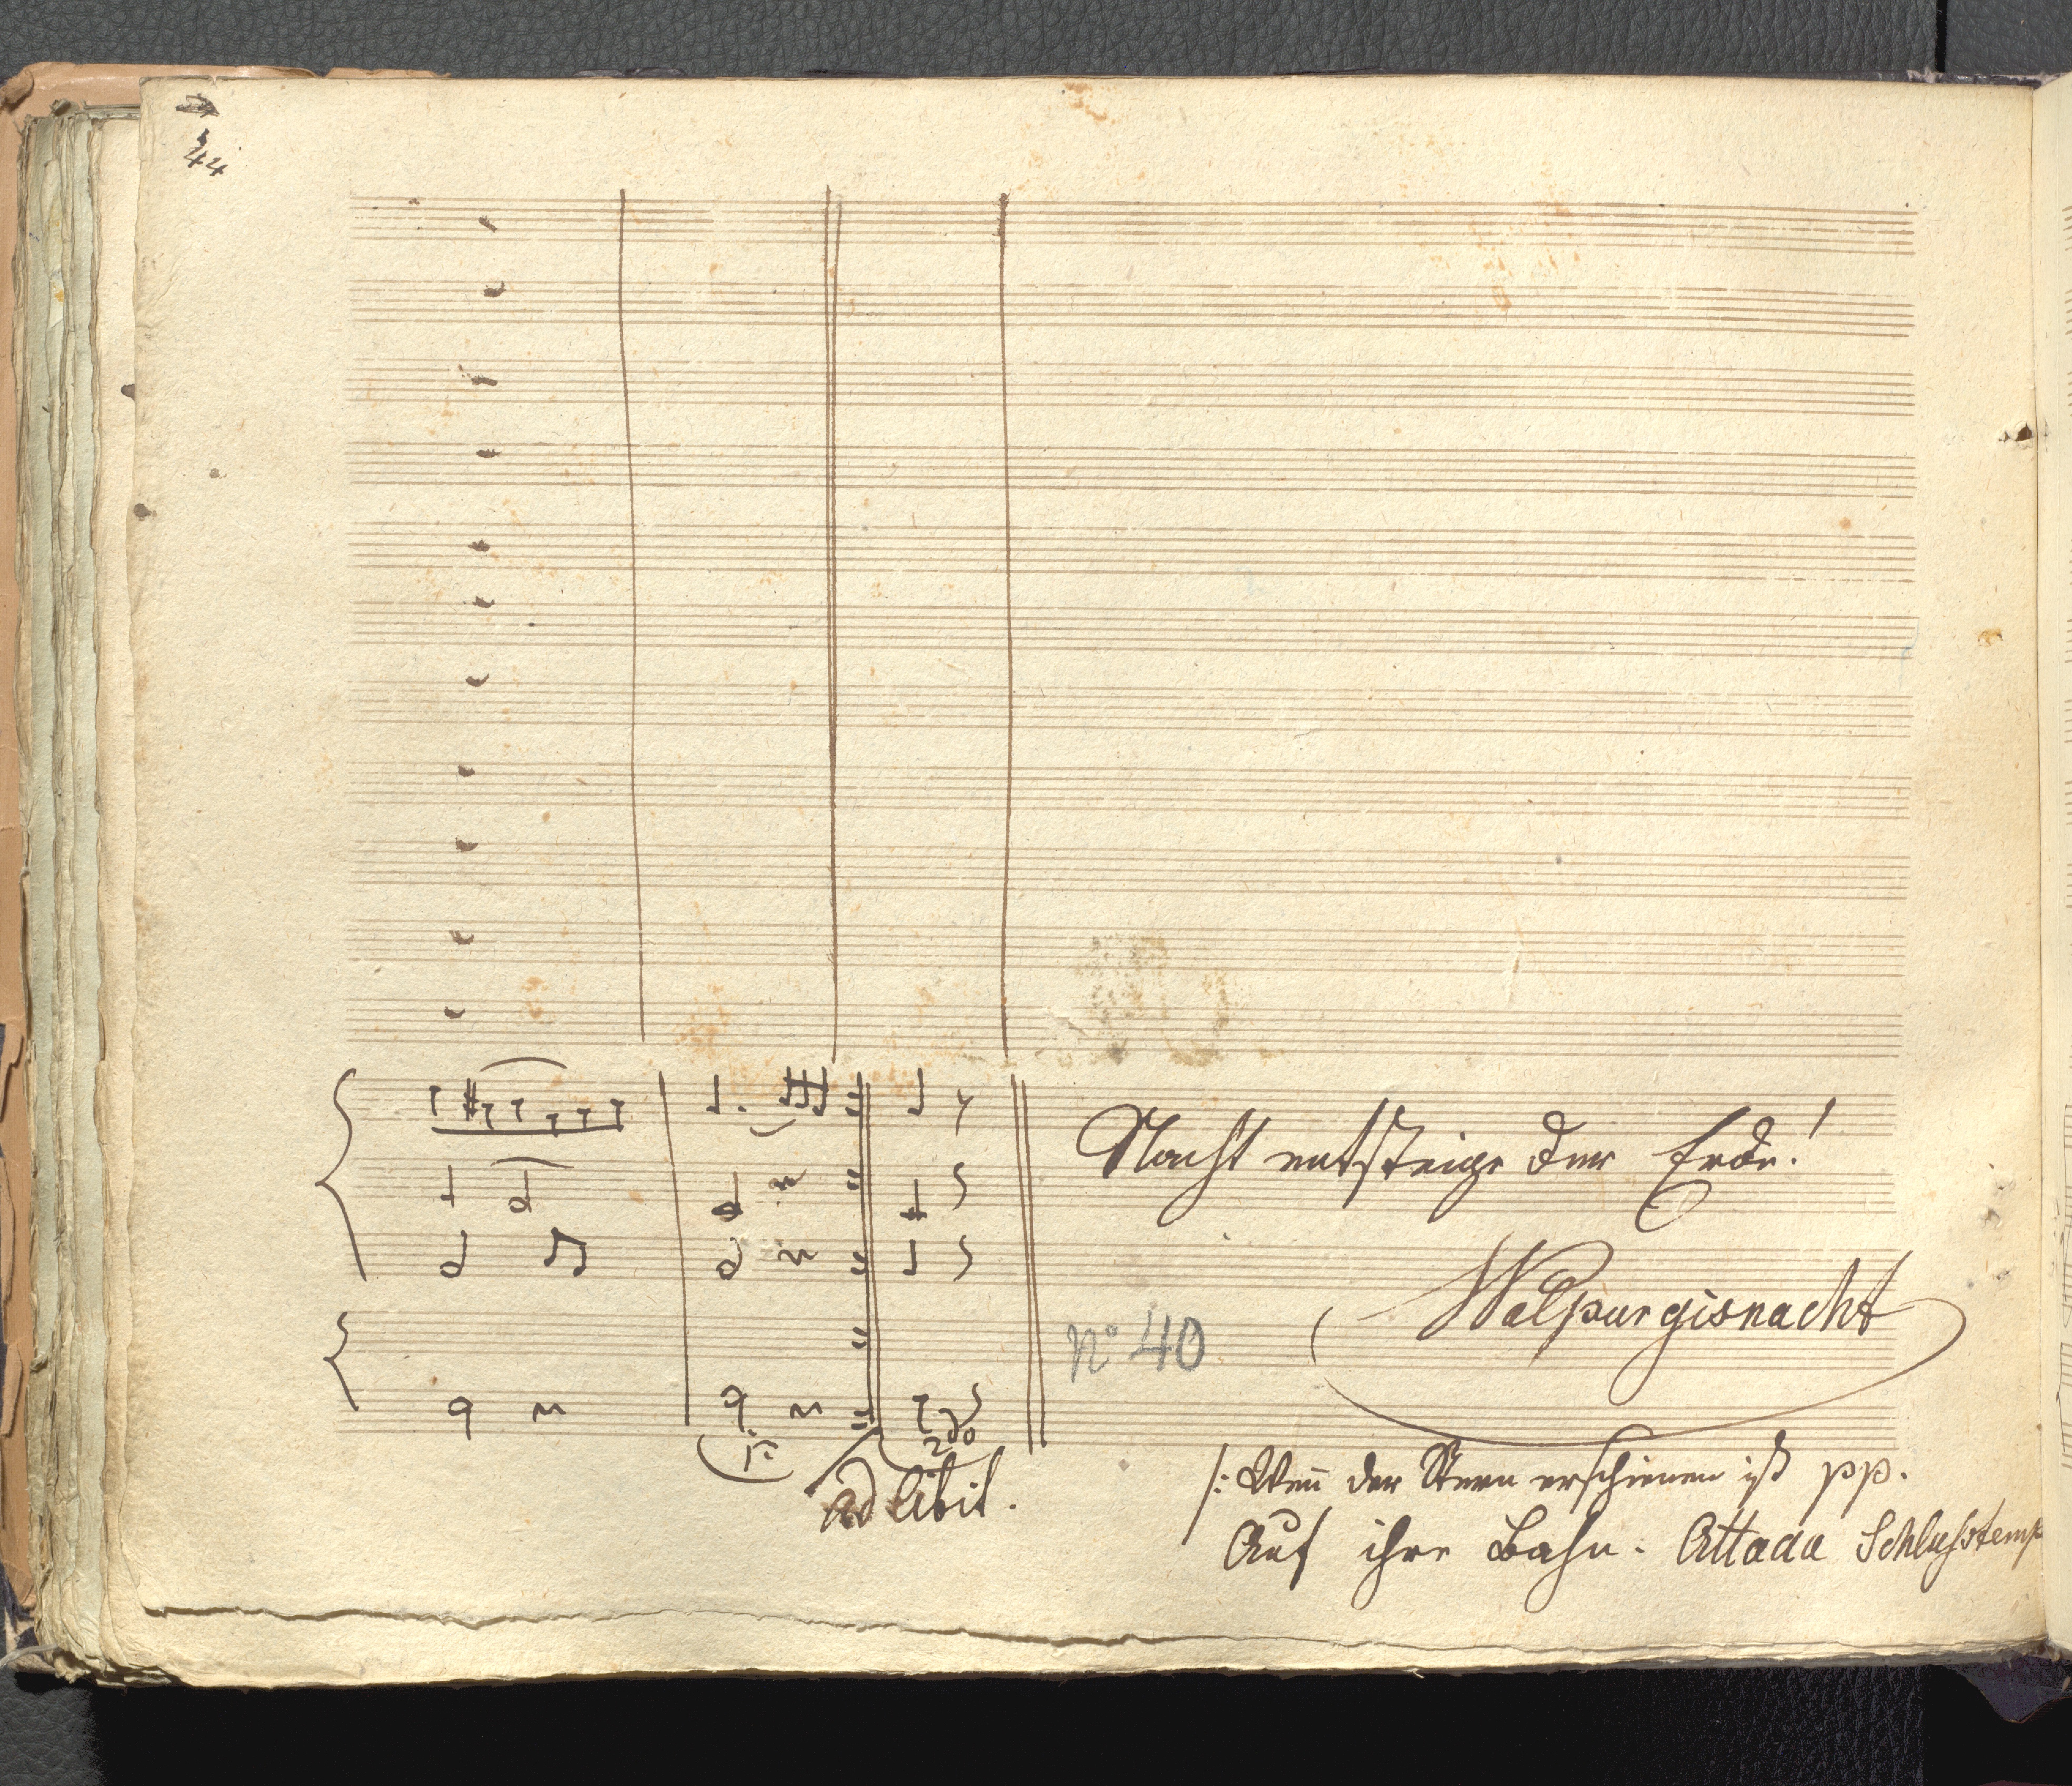 44
Nacht entsteige der Erde!
Walpurgisnacht
No 40
1a
2do
ad libit.
/: Wen̅ der Stern erschienen ist pp.
Auf ihre Bahn. Attaca Schlußtemp